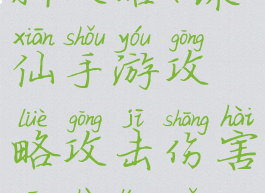 xiān shǒu yóu gōng
仙手游攻
lüè gōng jī shāng hài
略攻击伤害